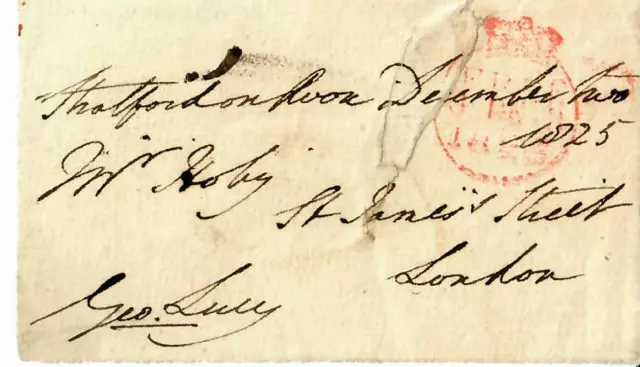 Stratford on Avon December two
1825
Mr Hoby
St James's Street
London
Geo. Lucy